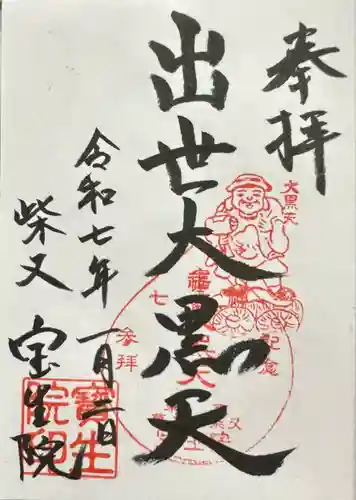 奉拝
大黒天
出世大黒天
令和七年一月二日
柴又
宝生院
参拝
記念
寶生
院印